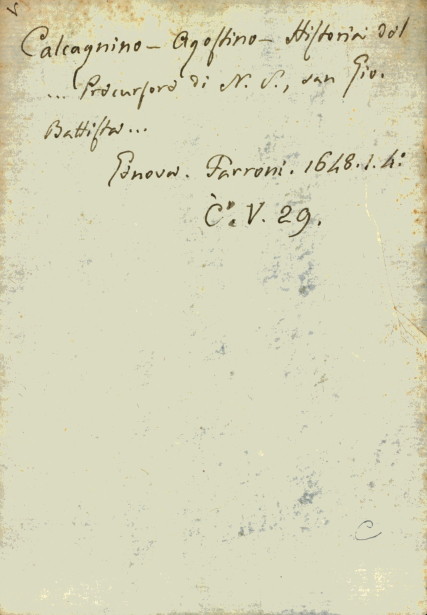 Calcagnino - Agostino - Historia del
... Precursore di N. S., san Gio.
Battista...
Genova. Farroni. 1648. 1. 4:
C. V. 29.
C